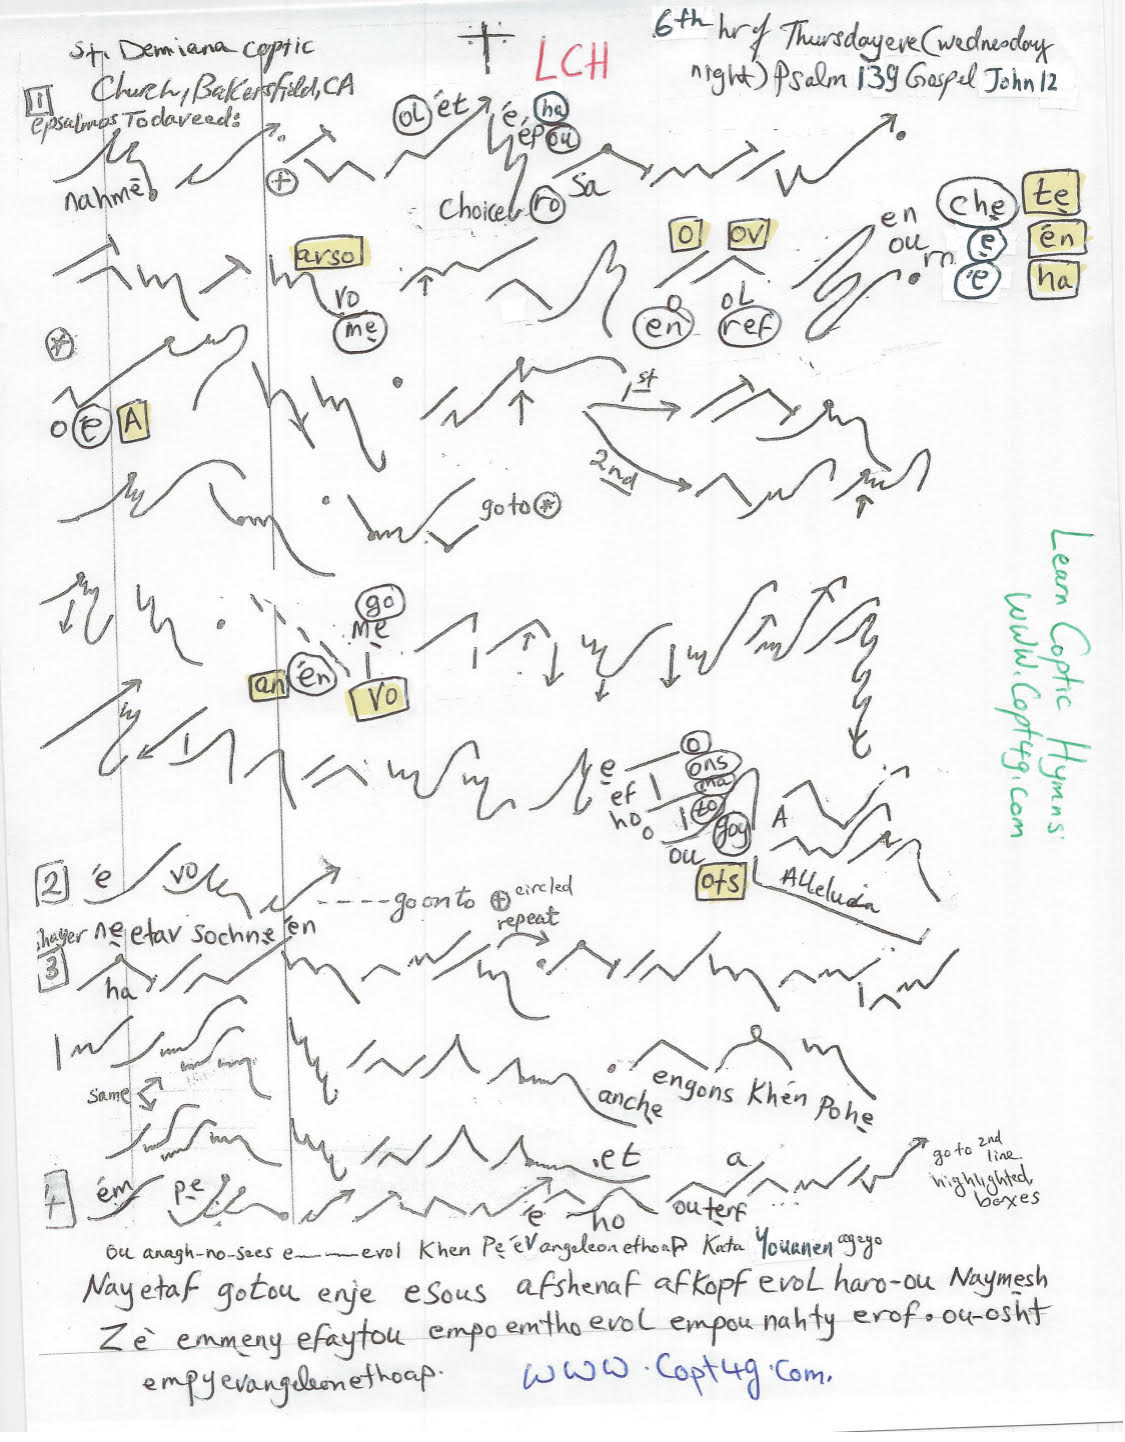 St. Demiana Coptic
Church, Bakersfield, CA
LCH
6th hr of Thursday eve (wednesday
night) Psalm 139 Gospel John 12
1
epsalmos To daveed:
nahmē
+
OL ét
é ha
ép ou
Choice ro
sa
arso
vo
me
O OV
O OL
en ref
en che te
ou e én
m é ha
*
o é A
1st
2nd
go to *
go
me
an én
vo
e o
ef ons
ho ma
o to
ou goy
ots
A
Alleluia
2 é vo
---- go on to + circled
repeat
ne etav sochne én
3
ha
same
anche
engons Khén Pohe
ém pe
.et
a
é ho outerf
go to 2nd
line
highlighted
boxes
ou anagh-no-sees e——evol Khen Pe évangeleonethoap Kata Youanen agego
Nayetaf gotou enje esous afshenaf afkopf evol haro-ou Naymesh
Zé emmeny efaytou empoemtho evol empou nahty erof. ou-osht
empyevangeleonethoap.
www.Copt4g.com.
Learn Coptic Hymns
www.Copt4g.com